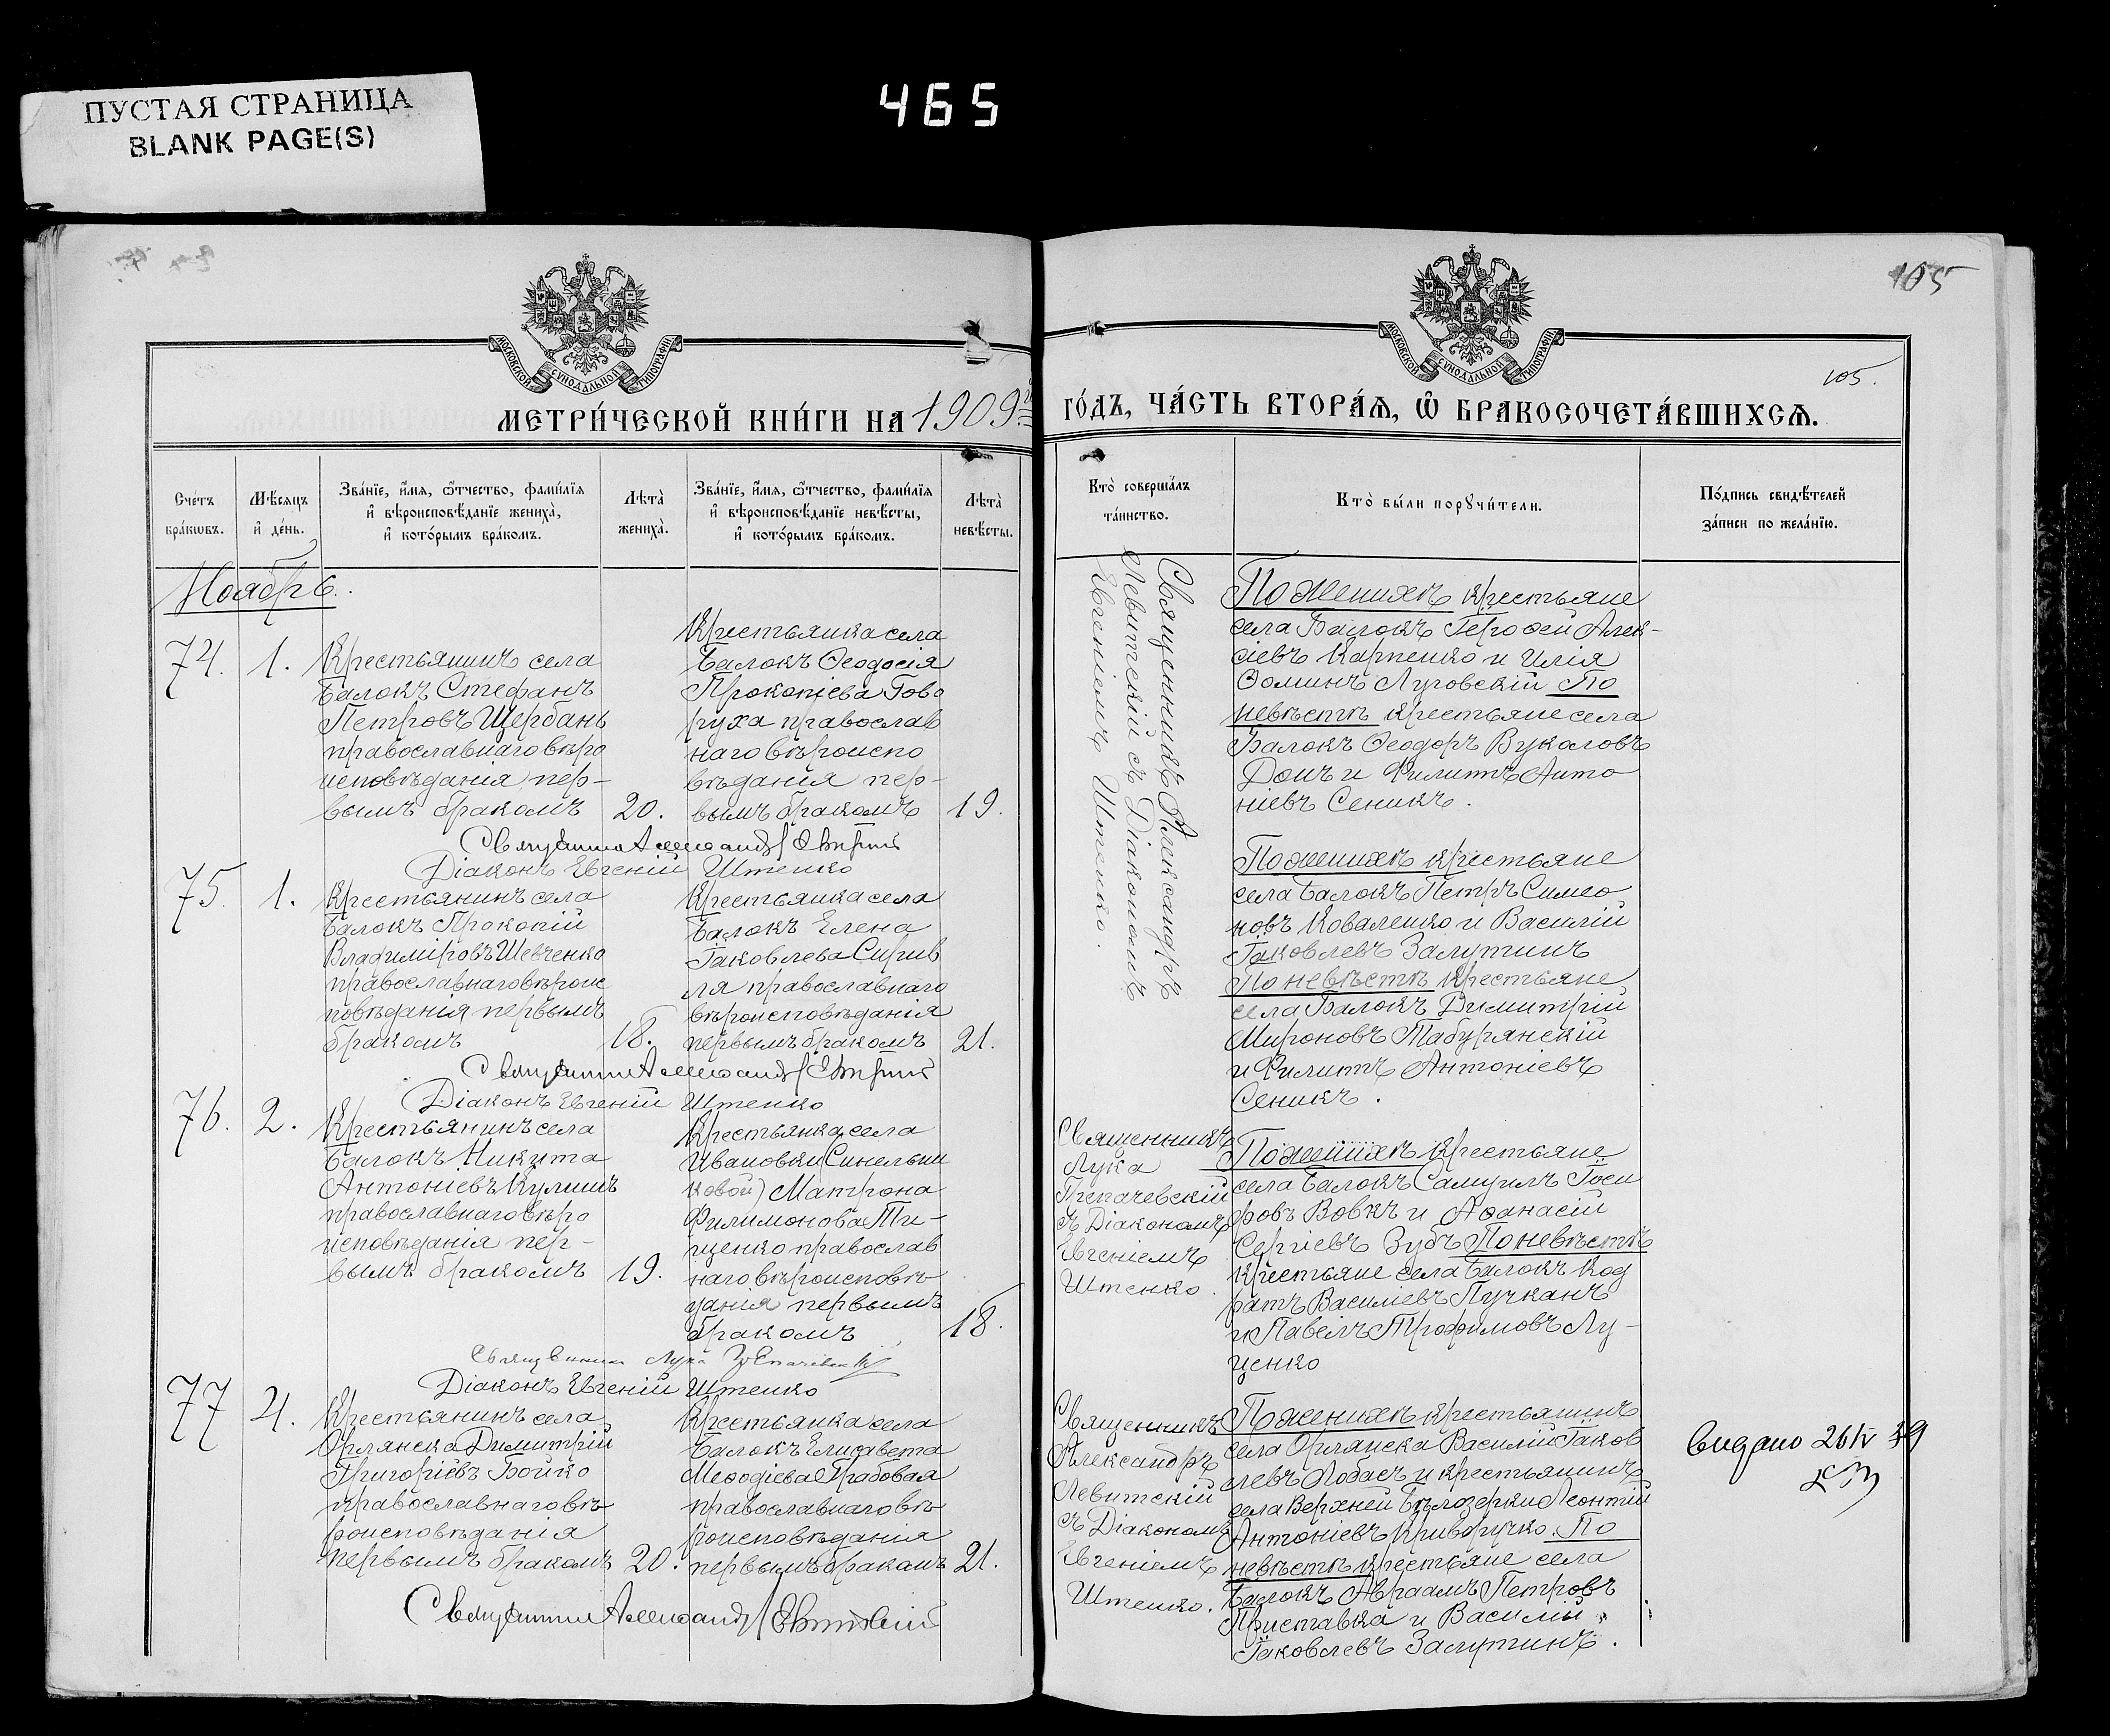 ПУСТАЯ СТРАНИЦА
BLANK PAGE(S)
465
105
105.
МОСКОВСКОЙ СѴНОДАЛЬНОЙ ТИПОГРАФІИ
МОСКОВСКОЙ СѴНОДАЛЬНОЙ ТИПОГРАФІИ
МЕТРИ́ЧЕСКОЙ КНИ́ГИ НА 1909й
ГО́ДЪ, ЧА́СТЬ ВТОРА́Ѧ, Ѽ БРАКОСОЧЕТА́ВШИХСѦ.
Сче́тъ
бра́кѡвъ.
Мѣ́сѧцъ
и҆ де́нь.
Зва́нїе, и҆́мѧ, ѻ҆́тчество, фами́лїѧ
и҆ вѣроисповѣ́данїе жениха̀,
и҆ кото́рымъ бра́комъ.
Лѣта̀
жениха̀.
Зва́нїе, и҆́мѧ, ѻ҆́тчество, фами́лїѧ
и҆ вѣроисповѣ́данїе невѣ́сты,
и҆ кото́рымъ бра́комъ.
Лѣта̀
невѣ́сты.
Кто̀ соверша́лъ
та́инство.
Кто̀ бы́ли порꙋчи́тели.
По́дпись свидѣ́телей
за́писи по жела́нїю.
Ноябрь.
74.
1.
Крестьянинъ села
Балокъ Стефанъ
Петровъ Щербань
православнаго вѣро
исповѣданія пер-
вымъ бракомъ
20.
Крестьянка села
Балокъ Ѳеодосія
Прокопіева Гово
руха православ
наго вѣроиспо
вѣданія пер-
вымъ бракомъ
19.
Священникъ Александръ
Левитскій съ Діакономъ
Евгеніемъ Штепко.
По женихѣ крестьяне
села Балокъ Герофей Алек-
сіевъ Карпенко и Илія
Ѳоминъ Луговскій По
невѣстѣ крестьяне села
Балокъ Ѳеодоръ Вукаловъ
Донъ и Филиппъ Анто
ніевъ Сеникъ.
Священникъ Александръ Левитскій
Діаконъ Евгеній Штепко
75.
1.
Крестьянинъ села
Балокъ Прокопій
Владиміровъ Шевченко
православнаго вѣроис
повѣданія первымъ
бракомъ
18.
Крестьянка села
Балокъ Елена
Іаковлева
ля православнаго
вѣроисповѣданія
первымъ бракомъ
21.
По женихѣ крестьяне
села Балокъ Петръ Симео
новъ Коваленко и Василій
Іаковлевъ Залутинъ
По невѣстѣ крестьяне
села Балокъ Димитрій
Мироновъ Табурянскій
и Филиппъ Антоніевъ
Сеникъ.
Священникъ Александръ Левитскій
Діаконъ Евгеній Штепко
76.
2.
Крестьянинъ села
Балокъ Никита
Антоніевъ Кулишъ
православнаго вѣро
исповѣданія пер-
вымъ бракомъ
19.
Крестьянка села
Ивановки (Синельни
ковой) Матрона
Филимонова Ти-
щенко православ
наго вѣроисповѣ
данія первымъ
бракомъ
18.
Священникъ
Лука
Трепачевскій
съ Діакономъ
Евгеніемъ
Штепко.
По женихѣ крестьяне
села Балокъ Самуилъ Іоси
фовъ Вовкъ и Аѳанасій
Сергіевъ Зубъ По невѣстѣ
крестьяне села Балокъ Код
ратъ Василіевъ Пучканъ
и Павелъ Трофимовъ Лу-
ценко
Священникъ Лука Трепачевскій
Діаконъ Евгеній Штепко
77
4.
Крестьянинъ села
Орлянска Димитрій
Григоріевъ Бойко
православнаго вѣ
роисповѣданія
первымъ бракомъ
20.
Крестьянка села
Балокъ Елисавета
Меѳодіева Грабовая
православнаго вѣ
роисповѣданія
первымъ бракомъ
21.
Священникъ
Александръ
Левитскій
съ Діакономъ
Евгеніемъ
Штепко.
По женихѣ крестьянинъ
села Орлянска Василій Іаков
левъ Лобасъ и крестьянинъ
села Верхней Бѣлозерки Леонтій
Антоніевъ Криворучко. По
невѣстѣ крестьяне села
Балокъ Авраамъ Петровъ
Приставка и Василій
Іаковлевъ Залутинъ.
видано 26 IV 39
Священникъ Александръ Левитскій